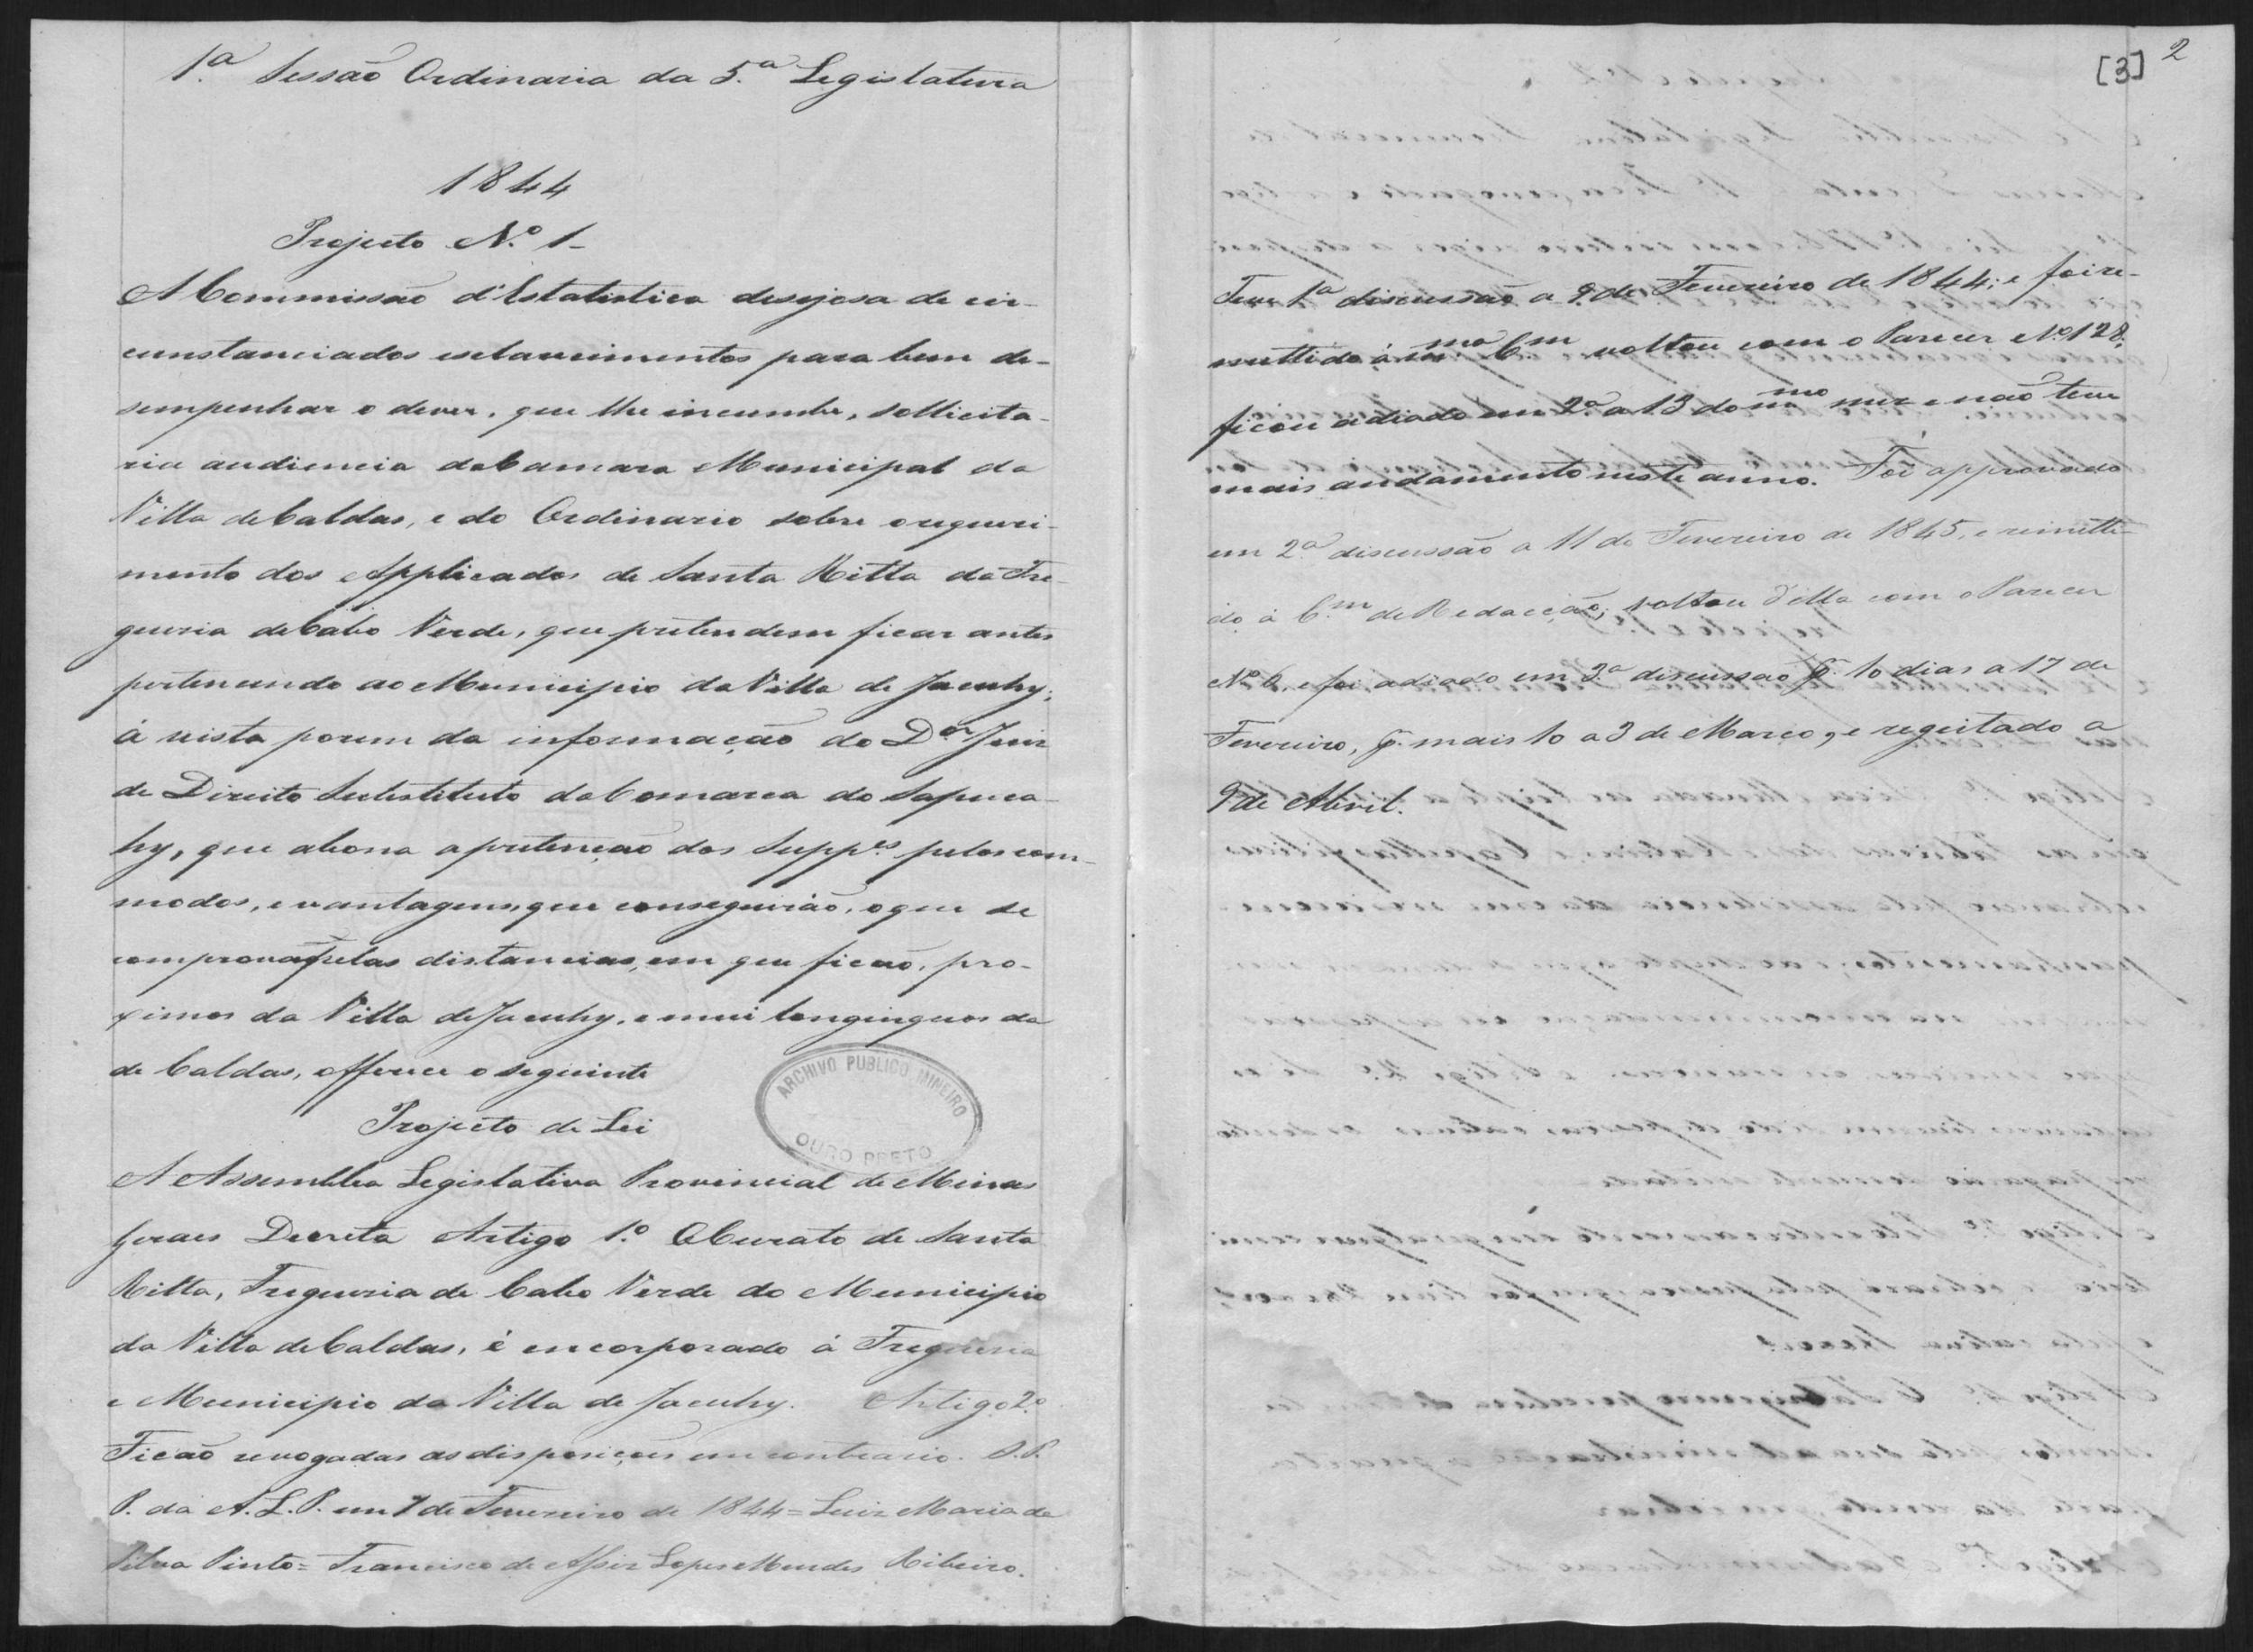 1.ª Sessão Ordinaria da 5.ª Legislatura
1844
Projecto N.º 1-
A Commissão d'Estatistica desejosa de cir-
cunstanciados esclarecimentos para bem de-
sempenhar o dever, que lhe incumbe, sollicita-
ria audiencia da Camara Municipal da
Villa de Caldas, e do Ordinario sobre o requeri-
mento dos Applicados de Santa Ritta da Fre-
guezia de Cabo Verde, que pretendem ficar antes
pertencendo ao Municipio da Villa de Jacuhy;
á vista porem da informação do D.or Juiz
de Direito Substituto da Comarca do Sapuca-
hy, que abona a pretenção dos Supp.es pelos com-
modos, e vantagens, que conseguirão, o que se
comprova pelas distancias, em que ficão, pro-
ximos da Villa de Jacuhy, e mui longinquos da
de Caldas, offerece o seguinte
Projecto de Lei
ARCHIVO PUBLICO MINEIRO
OURO PRETO
A Assemblea Legislativa Provincial de Minas
Geraes Decreta Artigo 1.º O Curato de Santa
Ritta, Freguezia de Cabo Verde do Municipio
da Villa de Caldas, é encorporado á Freguezia
e Municipio da Villa de Jacuhy. Artigo 2.º
Ficão revogadas as disposições em contrario. S.S.
P. da A. L. P. em 7 de Fevereiro de 1844 = Luiz Maria da
Silva Pinto = Francisco de Assiz Lopes Mendes Ribeiro.
[3] 2
Teve 1.ª discussão a 9 de Fevereiro de 1844; e foi re-
mettido á mma C.m voltou com o Parecer N.º 128,
ficou adiado em 2.ª a 13 do mmo mez e não teve
mais andamento neste anno. Foi approvado
em 2.ª discussão a 11 de Fevereiro de 1845, e remetti-
do á C.m de Redacção; voltou d'ella com o Parecer
N.º 6, e foi adiado em 3.ª discussão p.ª 10 dias a 17 de
Fevereiro, p.ª mais 10 a 3 de Março, e regeitado a
9 de Abril.